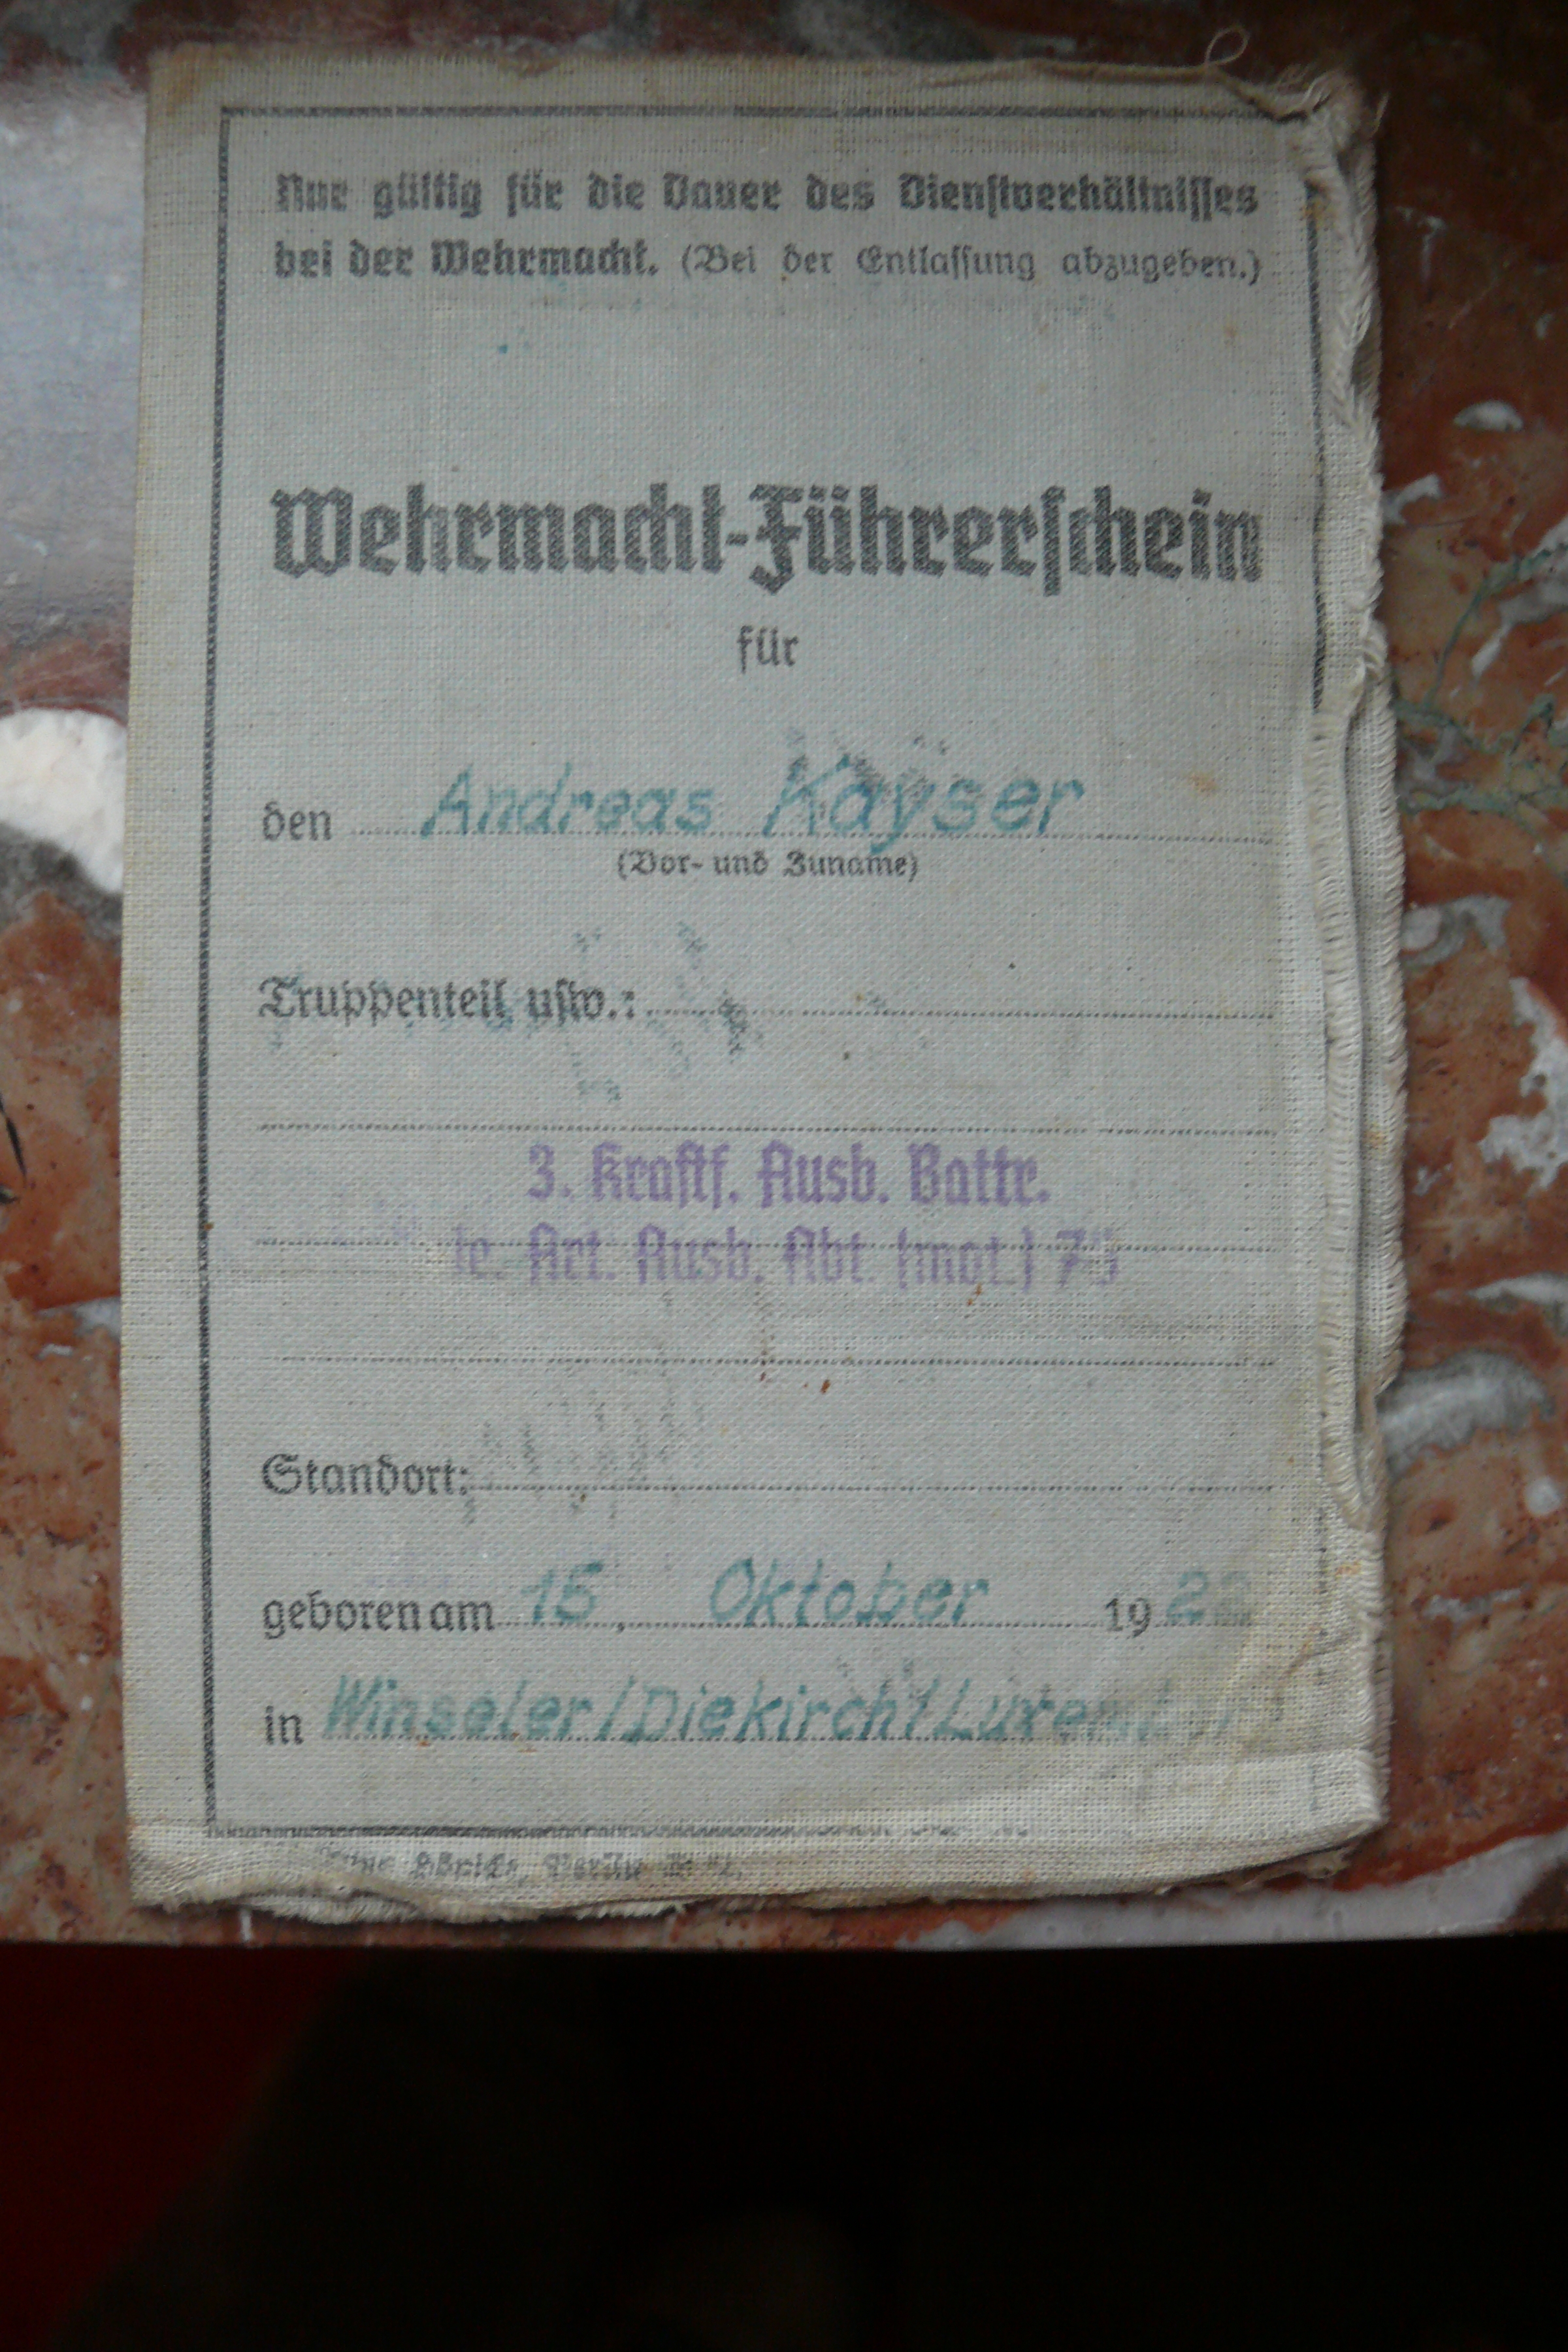 Nur gültig für die Dauer des Dienstverhältnisses
bei der Wehrmacht. (Bei der Entlassung abzugeben.)
Wehrmacht-Führerschein
für
den Andreas Kayser
(Vor- und Zuname)
Truppenteil usw.:
3. Kraftf. Ausb. Battr.
le. Art. Ausb. Abt. (mot.) 75
Standort:
geboren am 15. Oktober 19
in Winseler/Diekirch/Luxemburg
Berlin